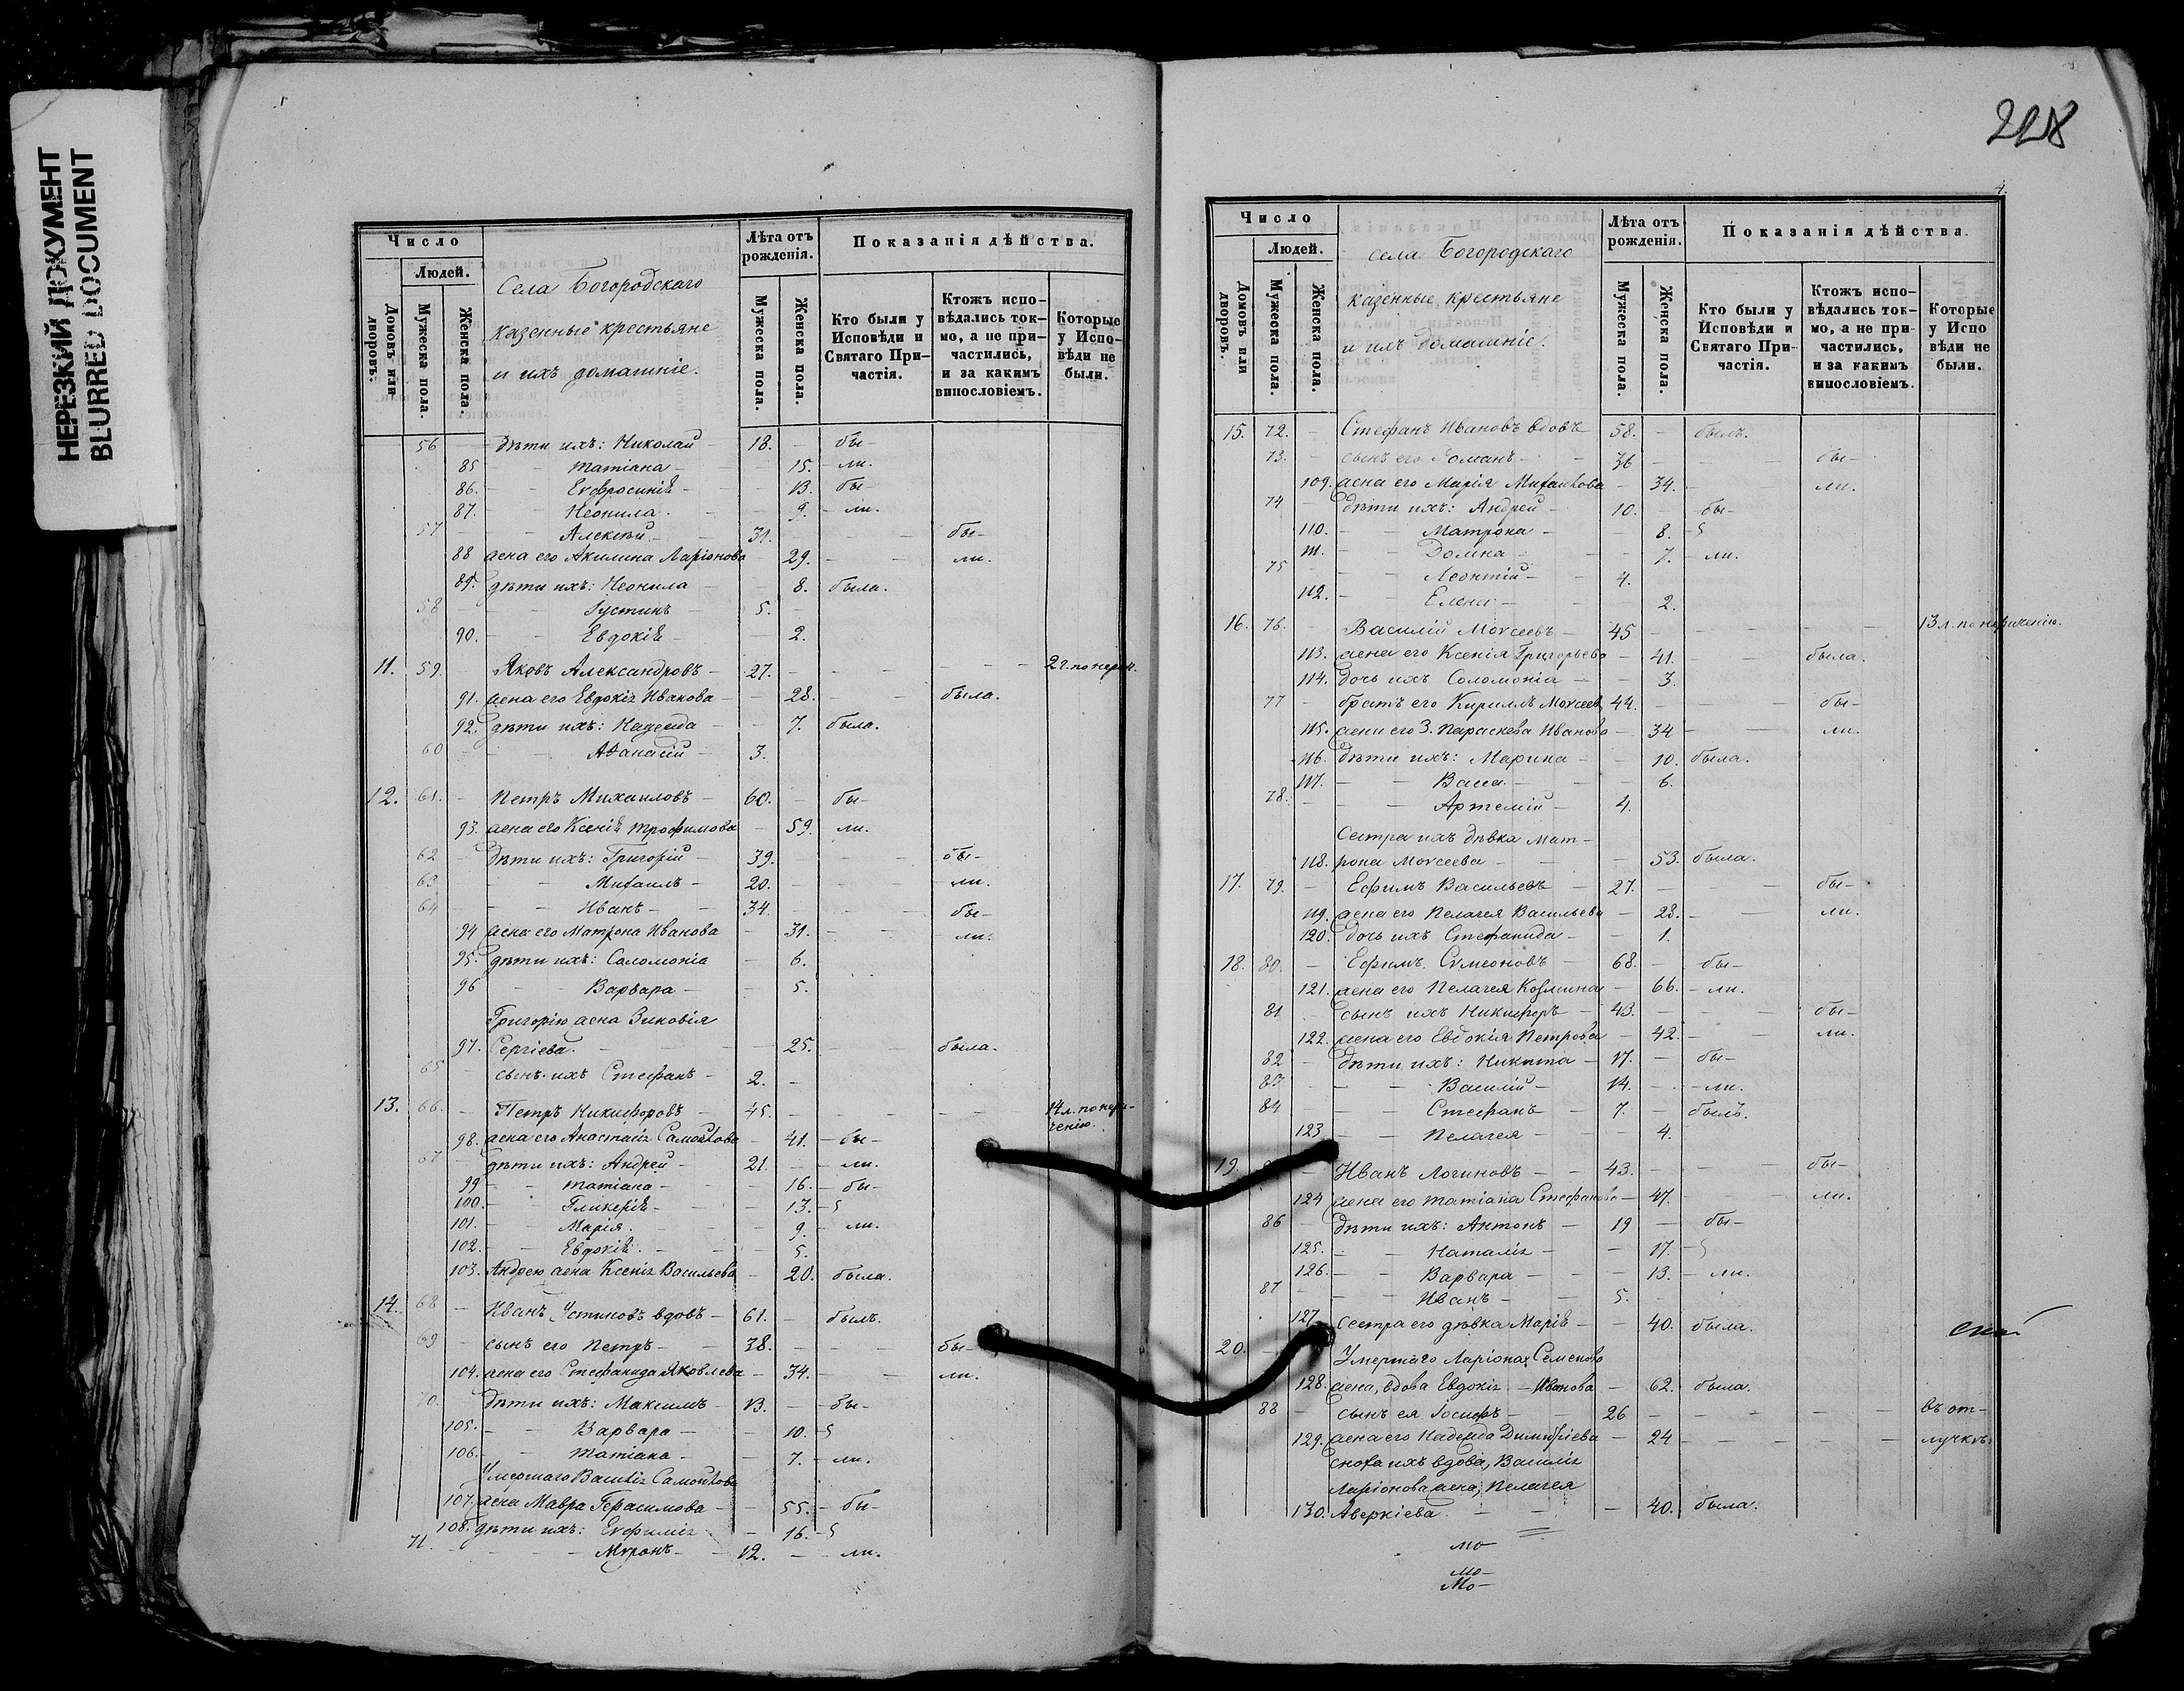 НЕРЕЗКИЙ ДОКУМЕНТ
BLURRED DOCUMENT
Число
Людей.
Домовъ или дворовъ.
Мужеска пола.
Женска пола.
Села Богородскаго
казенные крестьяне
и ихъ домашніе.
Лѣта отъ рожденія.
Мужеска пола.
Женска пола.
Показанія дѣйства.
Кто были у Исповѣди и Святаго Причастія.
Ктожъ исповѣдались токмо, а не причастились, и за какимъ винословіемъ.
Которые у Исповѣди не были.
56 – дѣти ихъ: Николай 18. – бы–
85 – – Татіана – – 15. – ли.
86. – – Евфросинія – – 13. бы–
87. – – Неонила. – 9. – ли.
57 – – Алексѣй. – 31. – – – бы–
88 жена его Акилина Ларіонова 29. – – ли.
89. дѣти ихъ: Неонила – – 8. была.
58 – – Іустинъ – 5. –
90. – – Евдокія – – 2.
11. 59. – Яковъ Александровъ – 27. – – – – 2 г. по нерач.
91. жена его Евдокія Иванова – – 28. – была.
92. дѣти ихъ: Надежда – – 7. была.
60 – – Аѳанасій – 3.
12. 61. – Петръ Михаиловъ – 60. – бы–
93. жена его Ксенія Трофимова – 59. ли.
62 – дѣти ихъ: Григорій – 39. – – – бы–
63 – – – Михаилъ – 20. – – – ли.
64 – – – Иванъ – – 34. – – бы–
94 жена его Матрона Иванова – 31. – – ли.
95. дѣти ихъ: Соломонія – 6.
96 – – Варвара – – 5.
Григорію жена Зиновія
97. Сергіева. – – – 25. была.
65 – сынъ ихъ Стефанъ – 2. –
13. 66. – Петръ Никифоровъ – 45. – – – – 14 л. по нера–
чению.
98. жена его Анастасія Самойлова – 41. – бы–
67 – дѣти ихъ: Андрей – 21. – – ли.
99 – – Татіана – – – 16. – бы–
100. – – Гликерія – – – 13. – §
101. – – Марія. – – 9. – ли.
102. – – Евдокія. – – 5.
103. Андрею жена Ксенія Васильева – 20. была.
14. 68 – Иванъ Устиновъ вдовъ – 61. – былъ.
69 – сынъ его Петръ – – 38. – – – бы–
104. жена его Стефанида Яковлева – 34. – – ли.
70. дѣти ихъ: Максимъ – 13. – – бы–
105. – – Варвара – – 10. – §
106. – – Татіана – – 7. – ли.
Умершаго Василія Самойлова
107. жена Мавра Герасимова – – 55. – бы–
108. дѣти ихъ: Евфимія – 16. – §
71. – – – Миронъ – 12. – – ли.
228
4.
Число
Людей.
Домовъ или дворовъ.
Мужеска пола.
Женска пола.
села Богородскаго
казенные крестьяне
и ихъ домашніе.
Лѣта отъ рожденія.
Мужеска пола.
Женска пола.
Показанія дѣйства.
Кто были у Исповѣди и Святаго Причастія.
Ктожъ исповѣдались токмо, а не причастились, и за какимъ винословіемъ.
Которые у Исповѣди не были.
15. 72. – Стефанъ Ивановъ вдовъ 58. – былъ.
73. – сынъ его Романъ – – 36 – – – бы–
109. жена его Марія Михаилова – 34. – ли.
74 – дѣти ихъ: Андрей – 10. – бы–
110. – – Матрона – – 8. – §
111. – – Домна – – 7. – ли.
75 – – – Леонтій – – 4.
112. – – Елена – – – 2.
16. 76. – Василій Моѵсеевъ – 45 – – – – 13 л. по нераченію.
113. жена его Ксенія Григорьева – 41. – – была.
114. дочь ихъ Соломонія – – 3.
77 – братъ его Кириллъ Моѵсеевъ 44. – – – бы–
115. жена его 3. Параскева Иванова – 34 – – ли.
116. дѣти ихъ: Марина – – 10. была.
117. – – Васса – – 6.
78. – – – Артемій – 4.
Сестра ихъ дѣвка Мат–
118. рона Моѵсеева – – – 53. была.
17. 79. – Ефимъ Васильевъ – 27. – – – бы–
119. жена его Пелагея Васильева – 28. – – ли.
120. дочь ихъ Стефанида – – 1.
18. 80. – Ефимъ Сѵмеоновъ – 68. – бы–
121. жена его Пелагея Козмина – 66. – ли.
81 сынъ ихъ Никифоръ – 43. – – – бы–
122. жена его Евдокія Петрова – 42. – ли.
82 – дѣти ихъ: Никита – 17. – бы–
83 – – – Василій – 14. – – ли.
84 – – – Стефанъ – 7. – былъ.
123 – – Пелагея – – – 4.
19. – Иванъ Логиновъ – – 43. – – – бы–
124 жена его Татіана Стефанова – 47. – – ли.
86 – дѣти ихъ: Антонъ – 19 – бы–
125. – – Наталія – – 17. – §
126. – – Варвара – – – 13. – ли.
87 – – – Иванъ – – 5. –
127. сестра его дѣвка Марія – – 40. была.
20. Умершаго Ларіона Семенова
128. жена, вдова Евдокія – Иванова – 62. была.
88 – сынъ ея Іосифъ – – 26 – – – – – въ от–
129. жена его Надежда Димитріева – 24 – – – – лучкѣ.
Сноха ихъ вдова, Василія
Ларіонова жена, Пелагея
130. Аверкіева. – – – 40. была.
мо–
мо–
Мо–